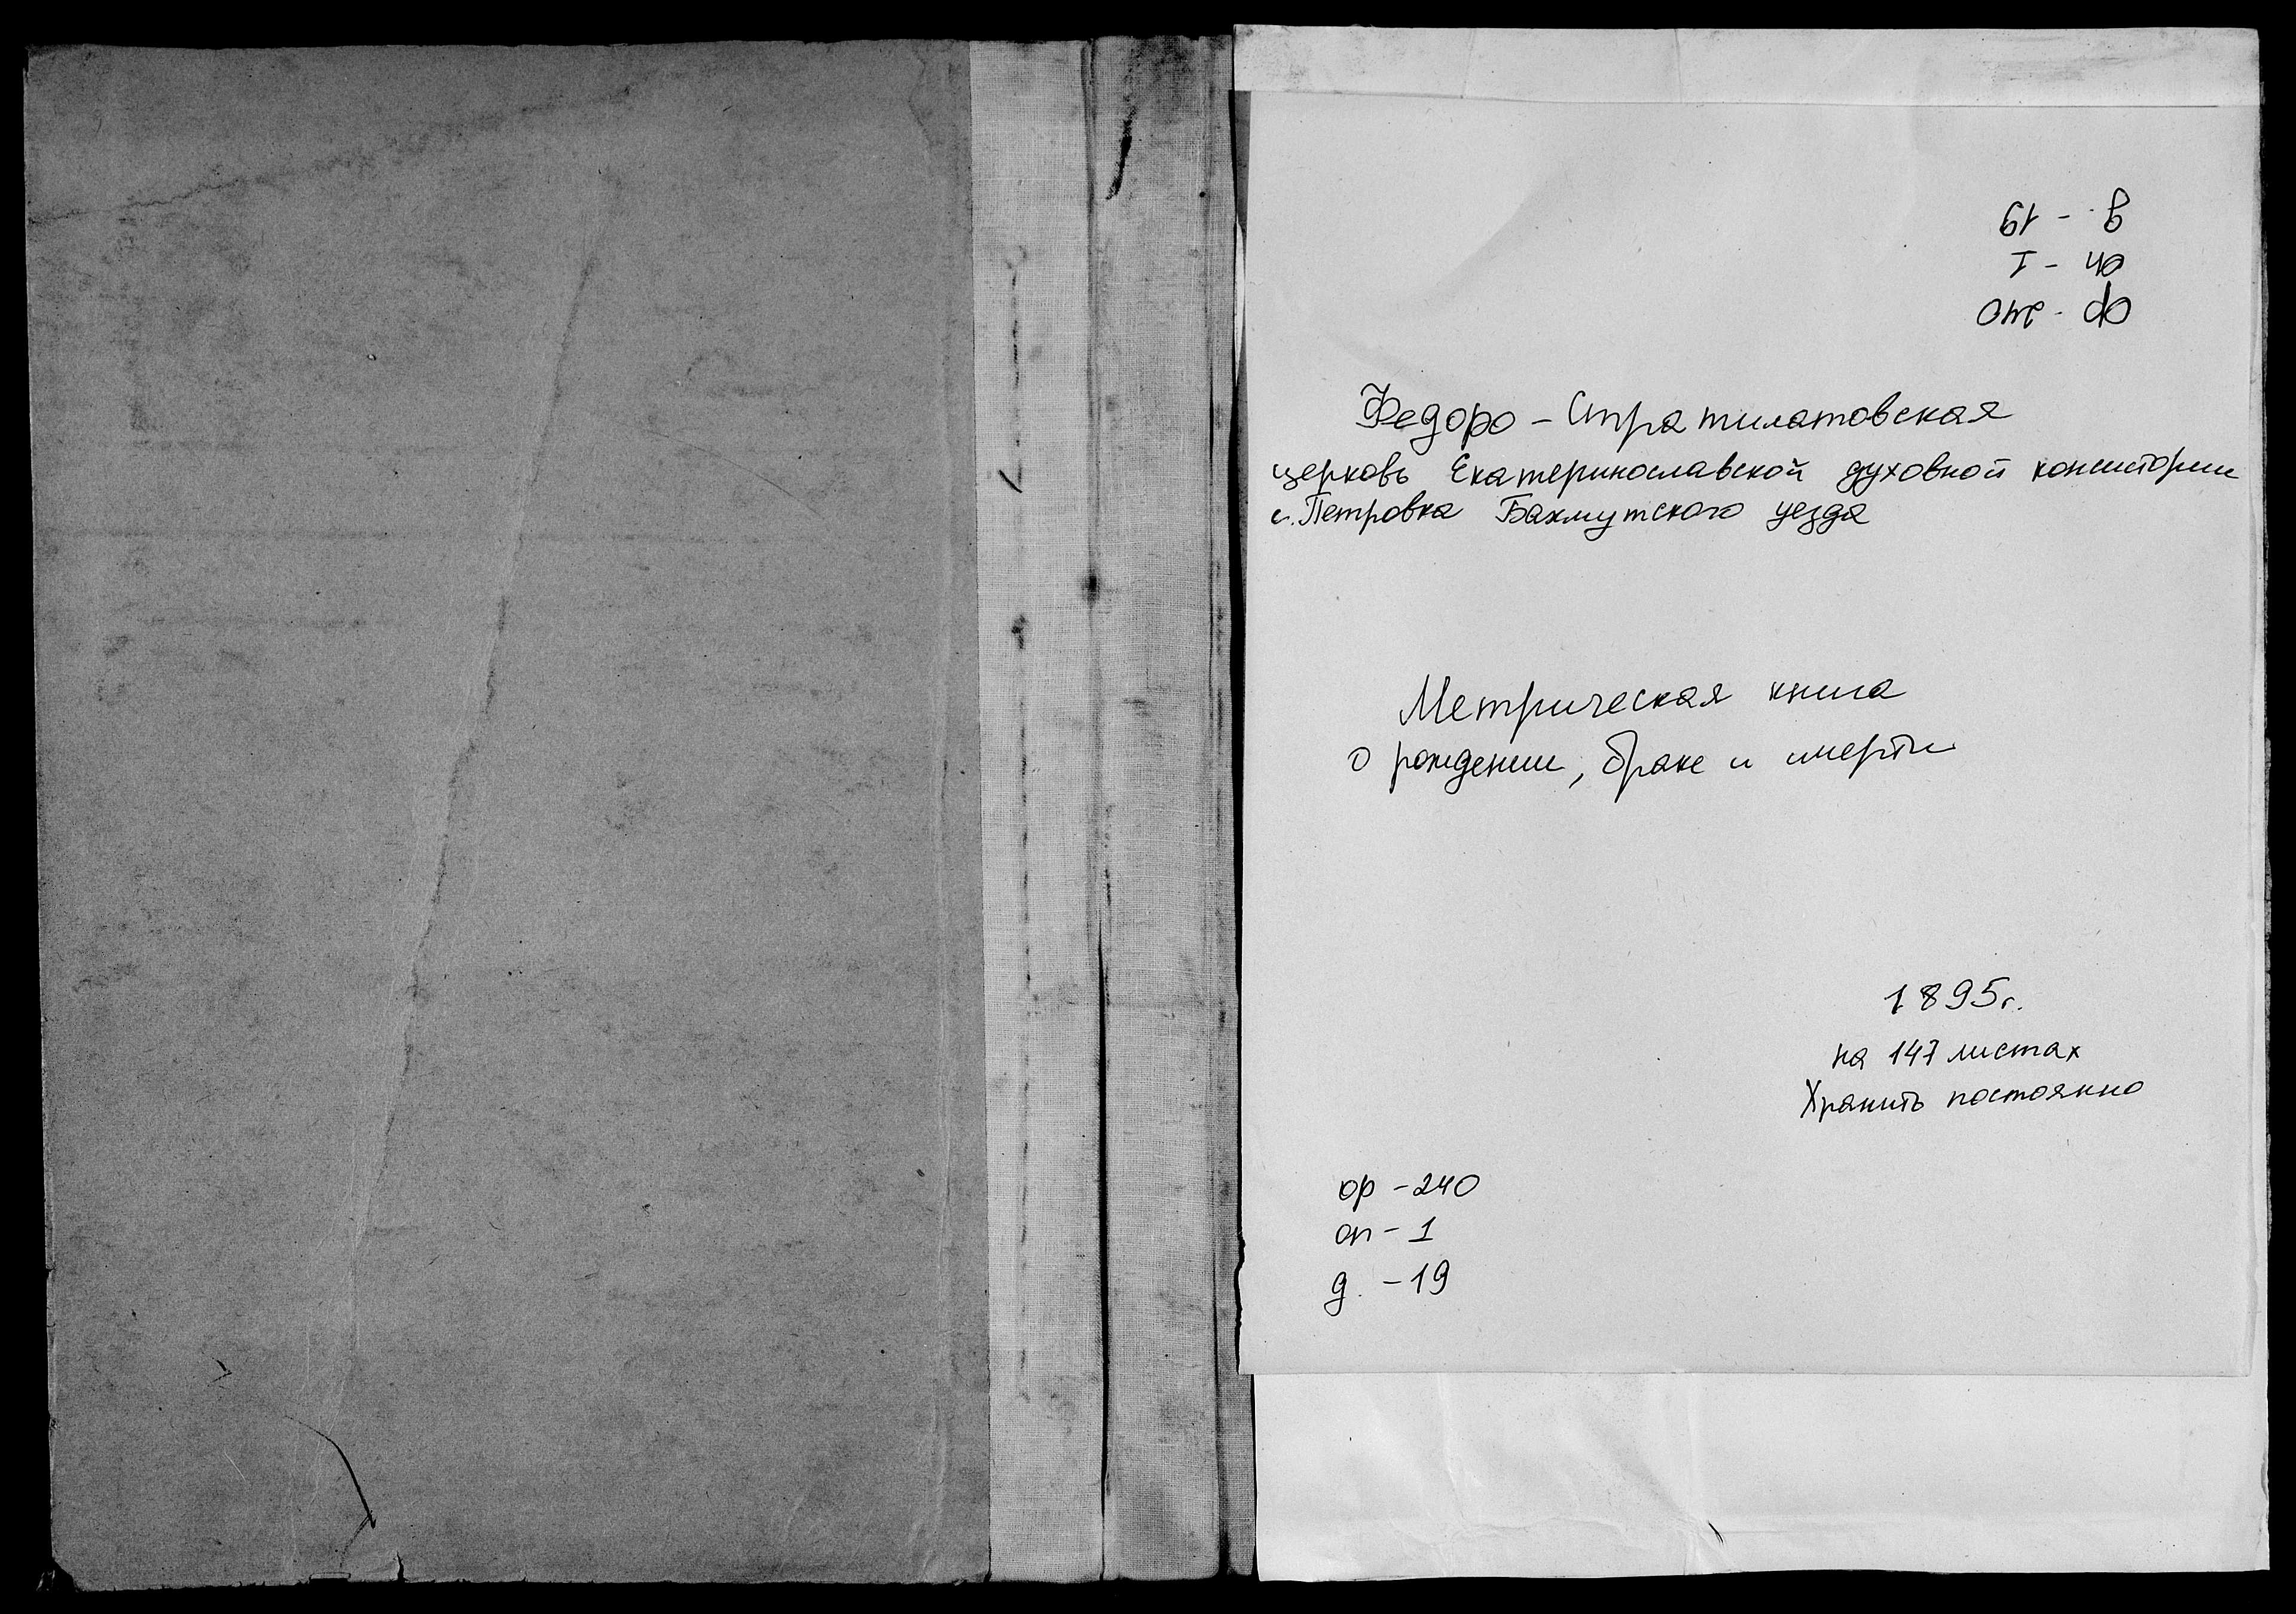 ф - 240
оп - 1
д. - 19
Федоро - Стратилатовская
церковь Екатеринославской духовной консистории
с. Петровка Бахмутского уезда
Метрическая книга
о рождении, браке и смерти
1895г.
на 147 листах
Хранить постоянно
ф - 240
оп - 1
д. - 19